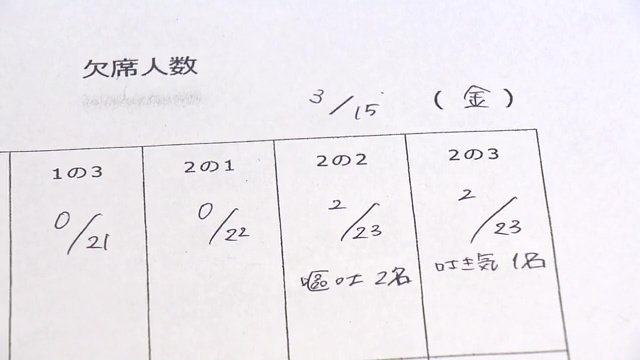 欠席人数
3/15 (金)
1の3 2の1 2の2 2の3
0/21 0/22 2/23 2/23
嘔吐 2名 吐き気 1名